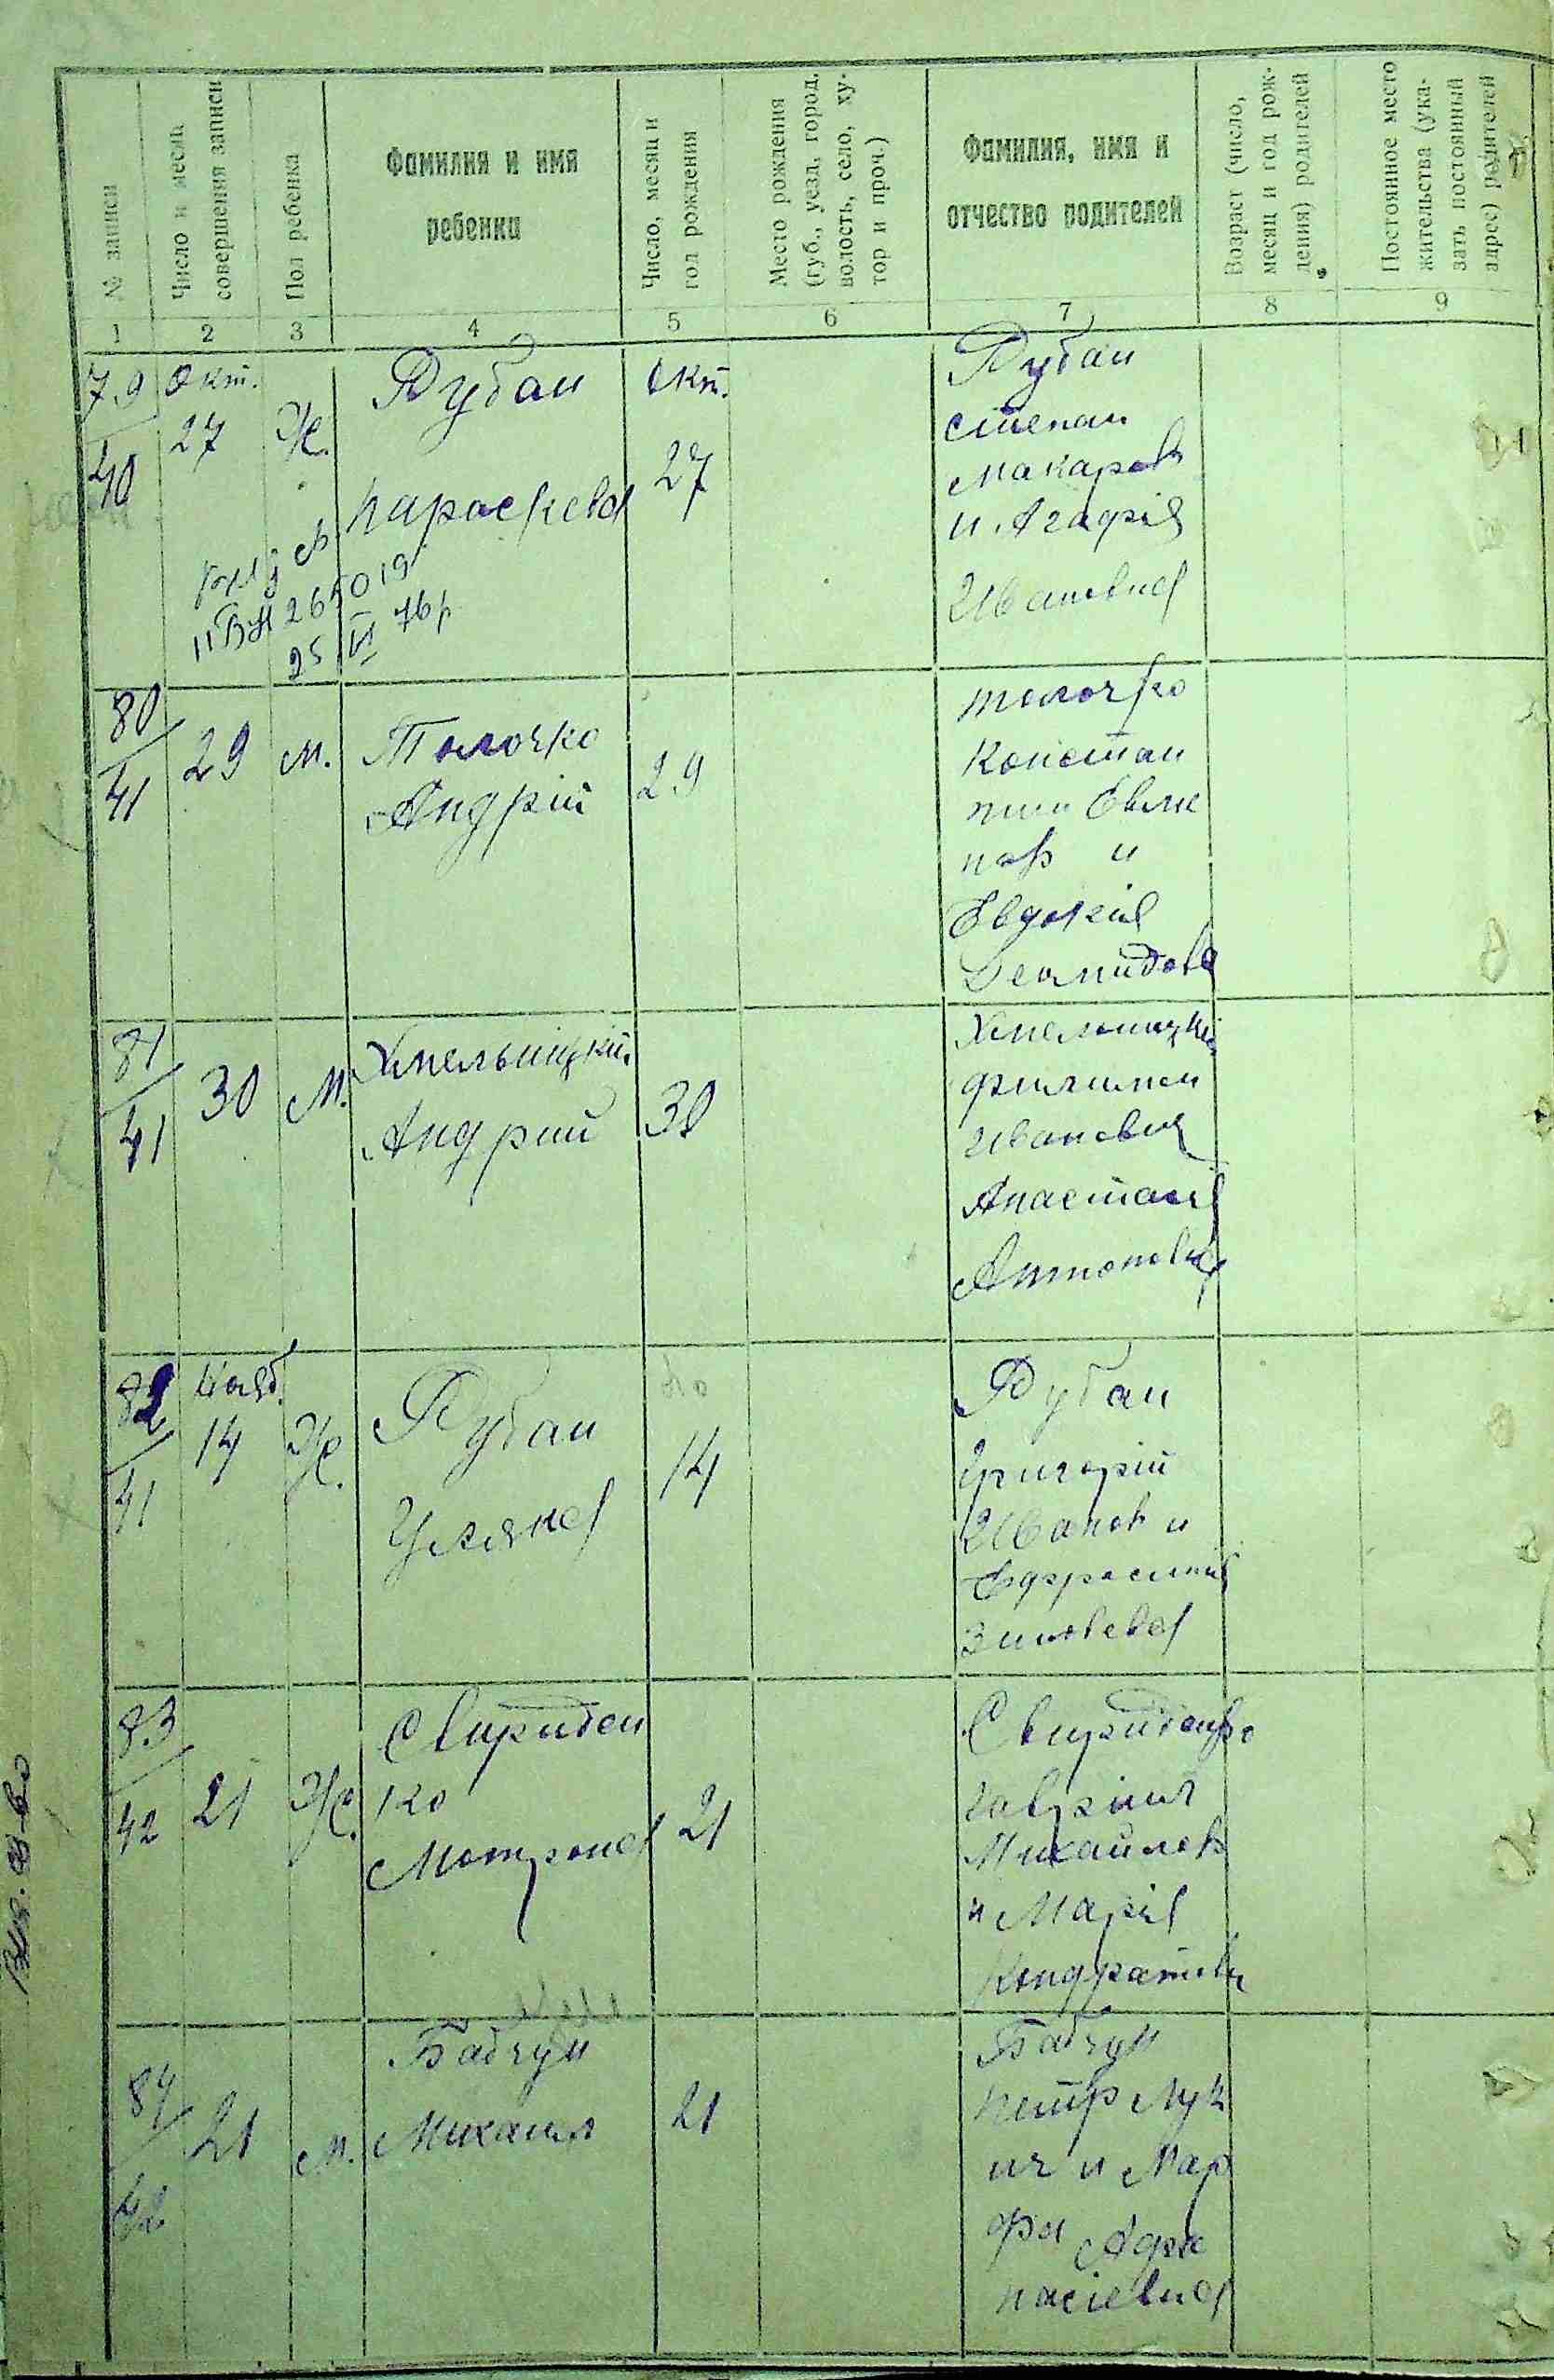 № записи
Число и месяц
совершения записи
Пол ребенка
Фамилия и имя
ребенка
Число, месяц и
год рождения
Место рождения
(губ., уезд, город,
волость, село, ху-
тор и проч.)
Фамилия, имя и
отчество родителей
Возраст (число,
месяц и год рож-
дения) родителей
Постоянное место
жительства (ука-
зать постоянный
адрес) родителей
1 2 3 4 5 6 7 8 9
79
40
Окт.
27
Ж.
Рубан
Параскева
Окт.
27
Рубан
Степан
Макаров
и Агафія
Ивановна
25 VI 76р
80
41
29
М.
Толочко
Андрій
29
Толочко
Констан
тин Евме
нов и
Евдокия
Демидова
81
41
30
М.
Хмельницкий
Андрий
30
Хмельницкий
Филимон
Иванович
Анастасия
Антоновна
82
41
Нояб.
14
Ж.
Рубан
Уляна
14
Рубан
Григорій
Иванов и
Ефросиния
Зиновьева
83
42
21
Ж.
Свириден
ко
Мотрона
21
Свириденко
Гавриил
Михайлов
и Мария
Кондратьев
84
42
21
М.
Бабчун
Михаил
21
Бабчун
Петр Лук
ич и Мар
фа Афа
насиевна